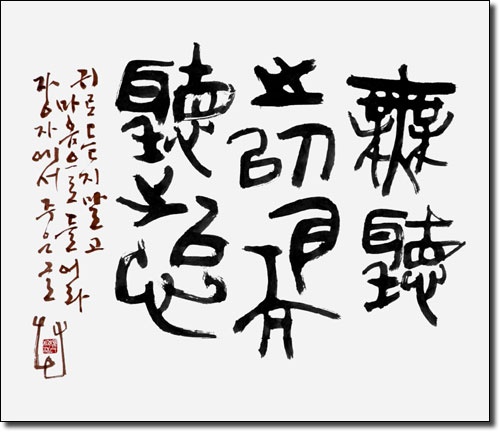 無聽
之以耳而
聽之以心
귀로 듣지말고
마음으로 들어라
장자에서 주운 글